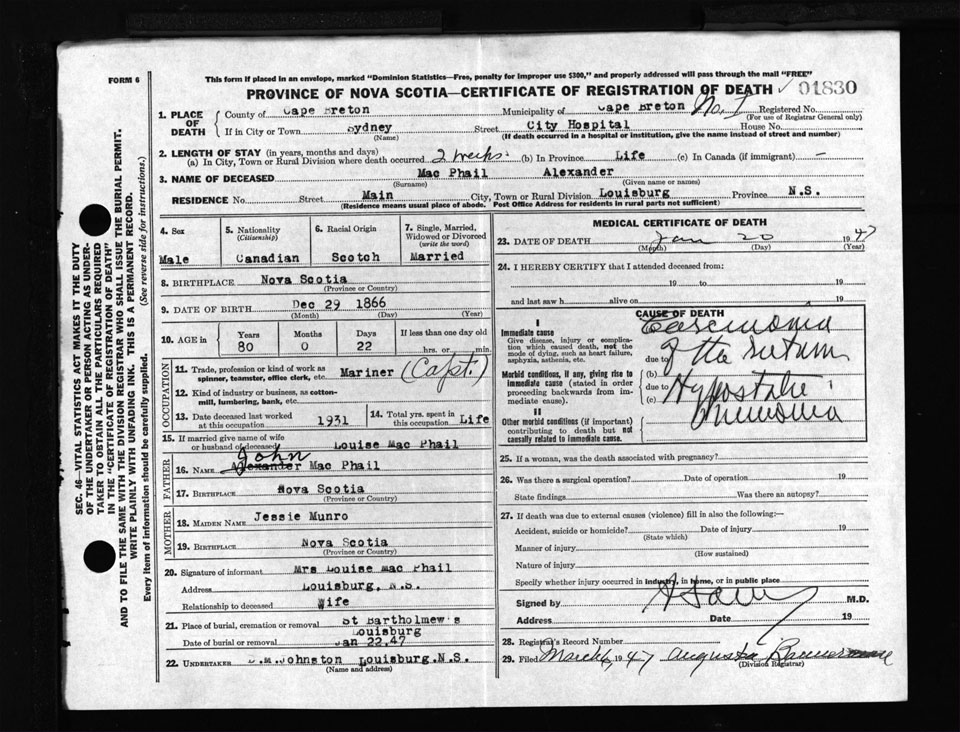 FORM 6
This form if placed in an envelope, marked "Dominion Statistics—Free, penalty for improper use $300," and properly addressed will pass through the mail "FREE"
PROVINCE OF NOVA SCOTIA—CERTIFICATE OF REGISTRATION OF DEATH 01830
1. PLACE OF DEATH
County of Cape Breton Municipality of Cape Breton No. 1 Registered No.
(For use of Registrar General only)
If in City or Town Sydney Street City Hospital House No.
(Name) (If death occurred in a hospital or institution, give the name instead of street and number)
2. LENGTH OF STAY (in years, months and days)
(a) In City, Town or Rural Division where death occurred 2 weeks. (b) In Province Life (c) In Canada (if immigrant) —
3. NAME OF DECEASED Mac Phail Alexander
(Surname) (Given name or names)
RESIDENCE No. Street Main City, Town or Rural Division Louisburg Province N.S.
(Residence means usual place of abode. Post Office Address for residents in rural parts not sufficient)
4. Sex
Male
5. Nationality
(Citizenship)
Canadian
6. Racial Origin
Scotch
7. Single, Married, Widowed or Divorced
(write the word)
Married
8. BIRTHPLACE Nova Scotia
(Province or Country)
9. DATE OF BIRTH Dec 29 1866
(Month) (Day) (Year)
10. AGE in
Years Months Days If less than one day old
80 0 22 hrs. or min.
OCCUPATION
11. Trade, profession or kind of work as
spinner, teamster, office clerk, etc. Mariner (Capt.)
12. Kind of industry or business, as cotton-
mill, lumbering, bank, etc.
13. Date deceased last worked
at this occupation 1931
14. Total yrs. spent in
this occupation Life
15. If married give name of wife
or husband of deceased Louise Mac Phail
FATHER
John
16. NAME Alexander Mac Phail
17. BIRTHPLACE Nova Scotia
(Province or Country)
MOTHER
18. MAIDEN NAME Jessie Munro
19. BIRTHPLACE Nova Scotia
(Province or Country)
20. Signature of informant Mrs Louise Mac Phail
Address Louisburg, N.S.
Relationship to deceased Wife
21. Place of burial, cremation or removal St Bartholmew's
Louisburg
Date of burial or removal Jan 22.47
22. UNDERTAKER D.M.Johnston Louisburg.N.S.
(Name and address)
MEDICAL CERTIFICATE OF DEATH
23. DATE OF DEATH Jan 20 1947
(Month) (Day) (Year)
24. I HEREBY CERTIFY that I attended deceased from:
19 to 19
and last saw h alive on 19
CAUSE OF DEATH
I
Immediate cause
Give disease, injury or complica-
tion which caused death, not the
mode of dying, such as heart failure,
asphyxia, asthenia, etc.
Carcinoma
due to of the rectum
Morbid conditions, if any, giving rise to
immediate cause (stated in order
proceeding backwards from im-
mediate cause).
(b)
due to Hypostatic
(c) Pneumonia
II
Other morbid conditions (if important)
contributing to death but not
causally related to immediate cause.
25. If a woman, was the death associated with pregnancy?
26. Was there a surgical operation? Date of operation 19
State findings Was there an autopsy?
27. If death was due to external causes (violence) fill in also the following:—
Accident, suicide or homicide? Date of injury 19
(State which)
Manner of injury
(How sustained)
Nature of injury
Specify whether injury occurred in industry, in home, or in public place
Signed by M.D.
Address Date 19
28. Registrar's Record Number
29. Filed March 6, 1947 Augusta Bannerman
(Division Registrar)
SEC. 46—VITAL STATISTICS ACT MAKES IT THE DUTY
OF THE UNDERTAKER OR PERSON ACTING AS UNDER-
TAKER TO OBTAIN ALL THE PARTICULARS REQUIRED
IN THE "CERTIFICATE OF REGISTRATION OF DEATH"
AND TO FILE THE SAME WITH THE DIVISION REGISTRAR WHO SHALL ISSUE THE BURIAL PERMIT.
WRITE PLAINLY WITH UNFADING INK. THIS IS A PERMANENT RECORD.
Every item of information should be carefully supplied. (See reverse side for instructions.)